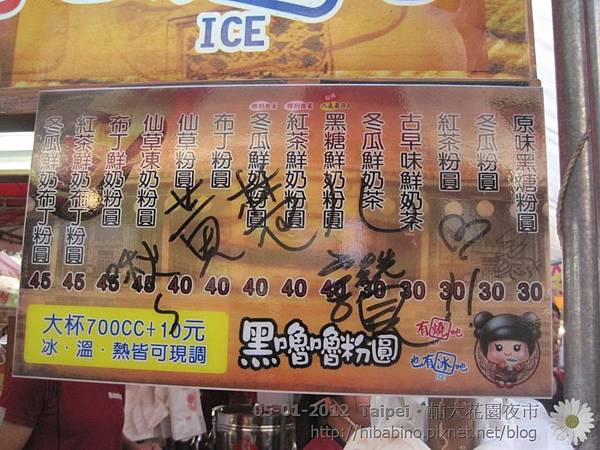 ICE
原味黑糖粉圓 30
冬瓜粉圓 30
紅茶粉圓 30
古早味鮮奶茶 30
冬瓜鮮奶茶 30
黑糖鮮奶粉圓 40
紅茶鮮奶粉圓 40
冬瓜鮮奶粉圓 40
布丁粉圓 40
仙草粉圓 40
仙草凍奶粉圓 45
布丁鮮奶粉圓 45
紅茶鮮奶布丁粉圓 45
冬瓜鮮奶布丁粉圓 45
黃
讚
!!
大杯700CC+10元
冰‧溫‧熱皆可現調
黑嚕嚕粉圓
有燒吧
也有冰吧
05-01-2012 Taipei‧輔大花園夜市
http://hibabino.pixnet.net/blog